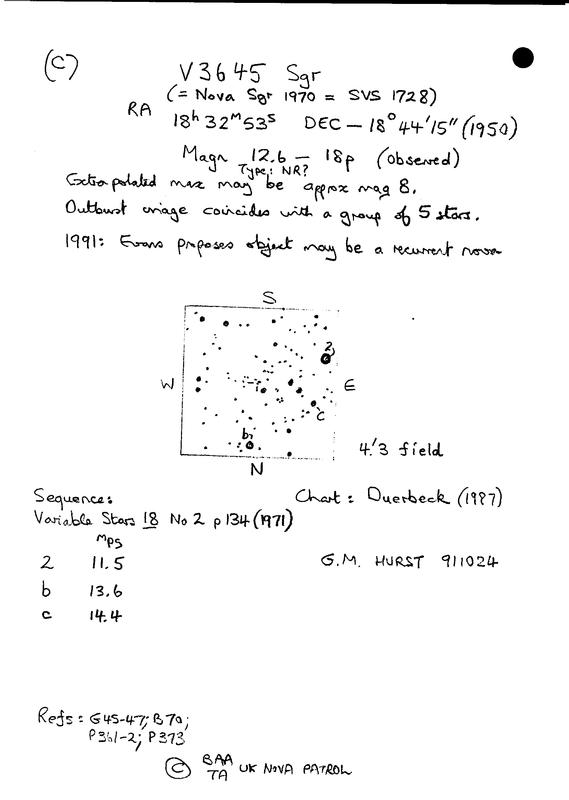 (C)
V3645 Sgr
(= Nova Sgr 1970 = SVS 1728)
RA 18h 32m 53s DEC – 18° 44' 15" (1950)
Magn 12.6 – 18p (observed)
Type: NR?
Extrapolated max may be approx mag 8.
Outburst image coincides with a group of 5 stars.
1991: Evans proposes object may be a recurrent nova
S
2
W
E
c
b
4.'3 field
N
Sequence:
Chart: Duerbeck (1987)
Variable Stars 18 No 2 p134 (1971)
mpg
2 11.5
G.M. HURST 911024
b 13.6
c 14.4
Refs: G45-47; B70;
P361-2; P373
© BAA
TA UK NOVA PATROL